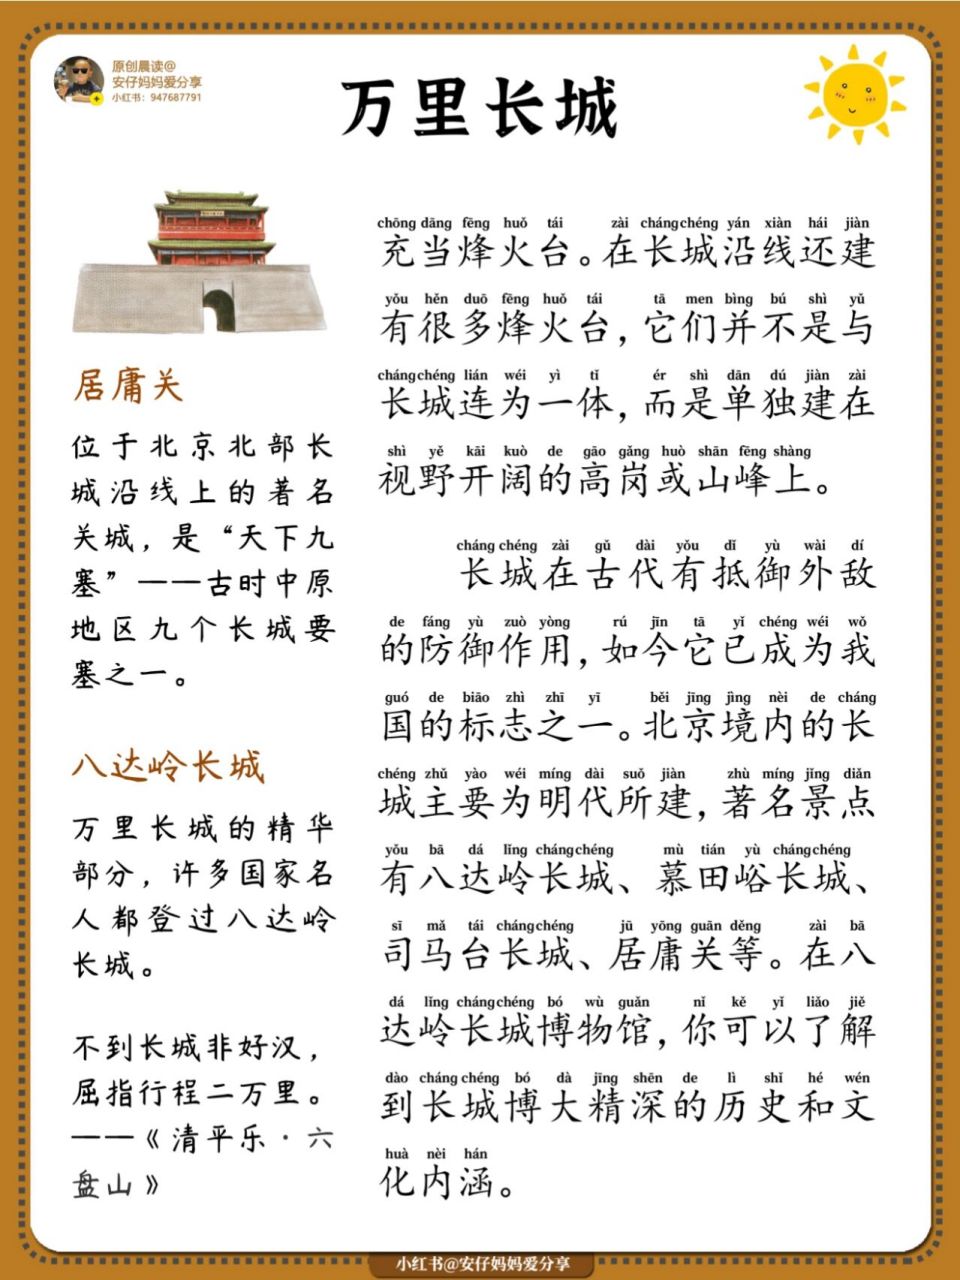 原创晨读@
安仔妈妈爱分享
小红书：947687791
万里长城
居庸关
位于北京北部长
城沿线上的著名
关城，是“天下九
塞”——古时中原
地区九个长城要
塞之一。
八达岭长城
万里长城的精华
部分，许多国家名
人都登过八达岭
长城。
不到长城非好汉，
屈指行程二万里。
——《清平乐·六
盘山》
chōng dāng fēng huǒ tái zài cháng chéng yán xiàn hái jiàn
充当烽火台。在长城沿线还建
yǒu hěn duō fēng huǒ tái tā men bìng bú shì yǔ
有很多烽火台，它们并不是与
cháng chéng lián wéi yì tǐ ér shì dān dú jiàn zài
长城连为一体，而是单独建在
shì yě kāi kuò de gāo gǎng huò shān fēng shàng
视野开阔的高岗或山峰上。
cháng chéng zài gǔ dài yǒu dǐ yù wài dí
长城在古代有抵御外敌
de fáng yù zuò yòng rú jīn tā yǐ chéng wéi wǒ
的防御作用，如今它已成为我
guó de biāo zhì zhī yī běi jīng jìng nèi de cháng
国的标志之一。北京境内的长
chéng zhǔ yào wéi míng dài suǒ jiàn zhù míng jǐng diǎn
城主要为明代所建，著名景点
yǒu bā dá lǐng cháng chéng mù tián yù cháng chéng
有八达岭长城、慕田峪长城、
sī mǎ tái cháng chéng jū yōng guān děng zài bā
司马台长城、居庸关等。在八
dá lǐng cháng chéng bó wù guǎn nǐ kě yǐ liǎo jiě
达岭长城博物馆，你可以了解
dào cháng chéng bó dà jīng shēn de lì shǐ hé wén
到长城博大精深的历史和文
huà nèi hán
化内涵。
小红书@安仔妈妈爱分享